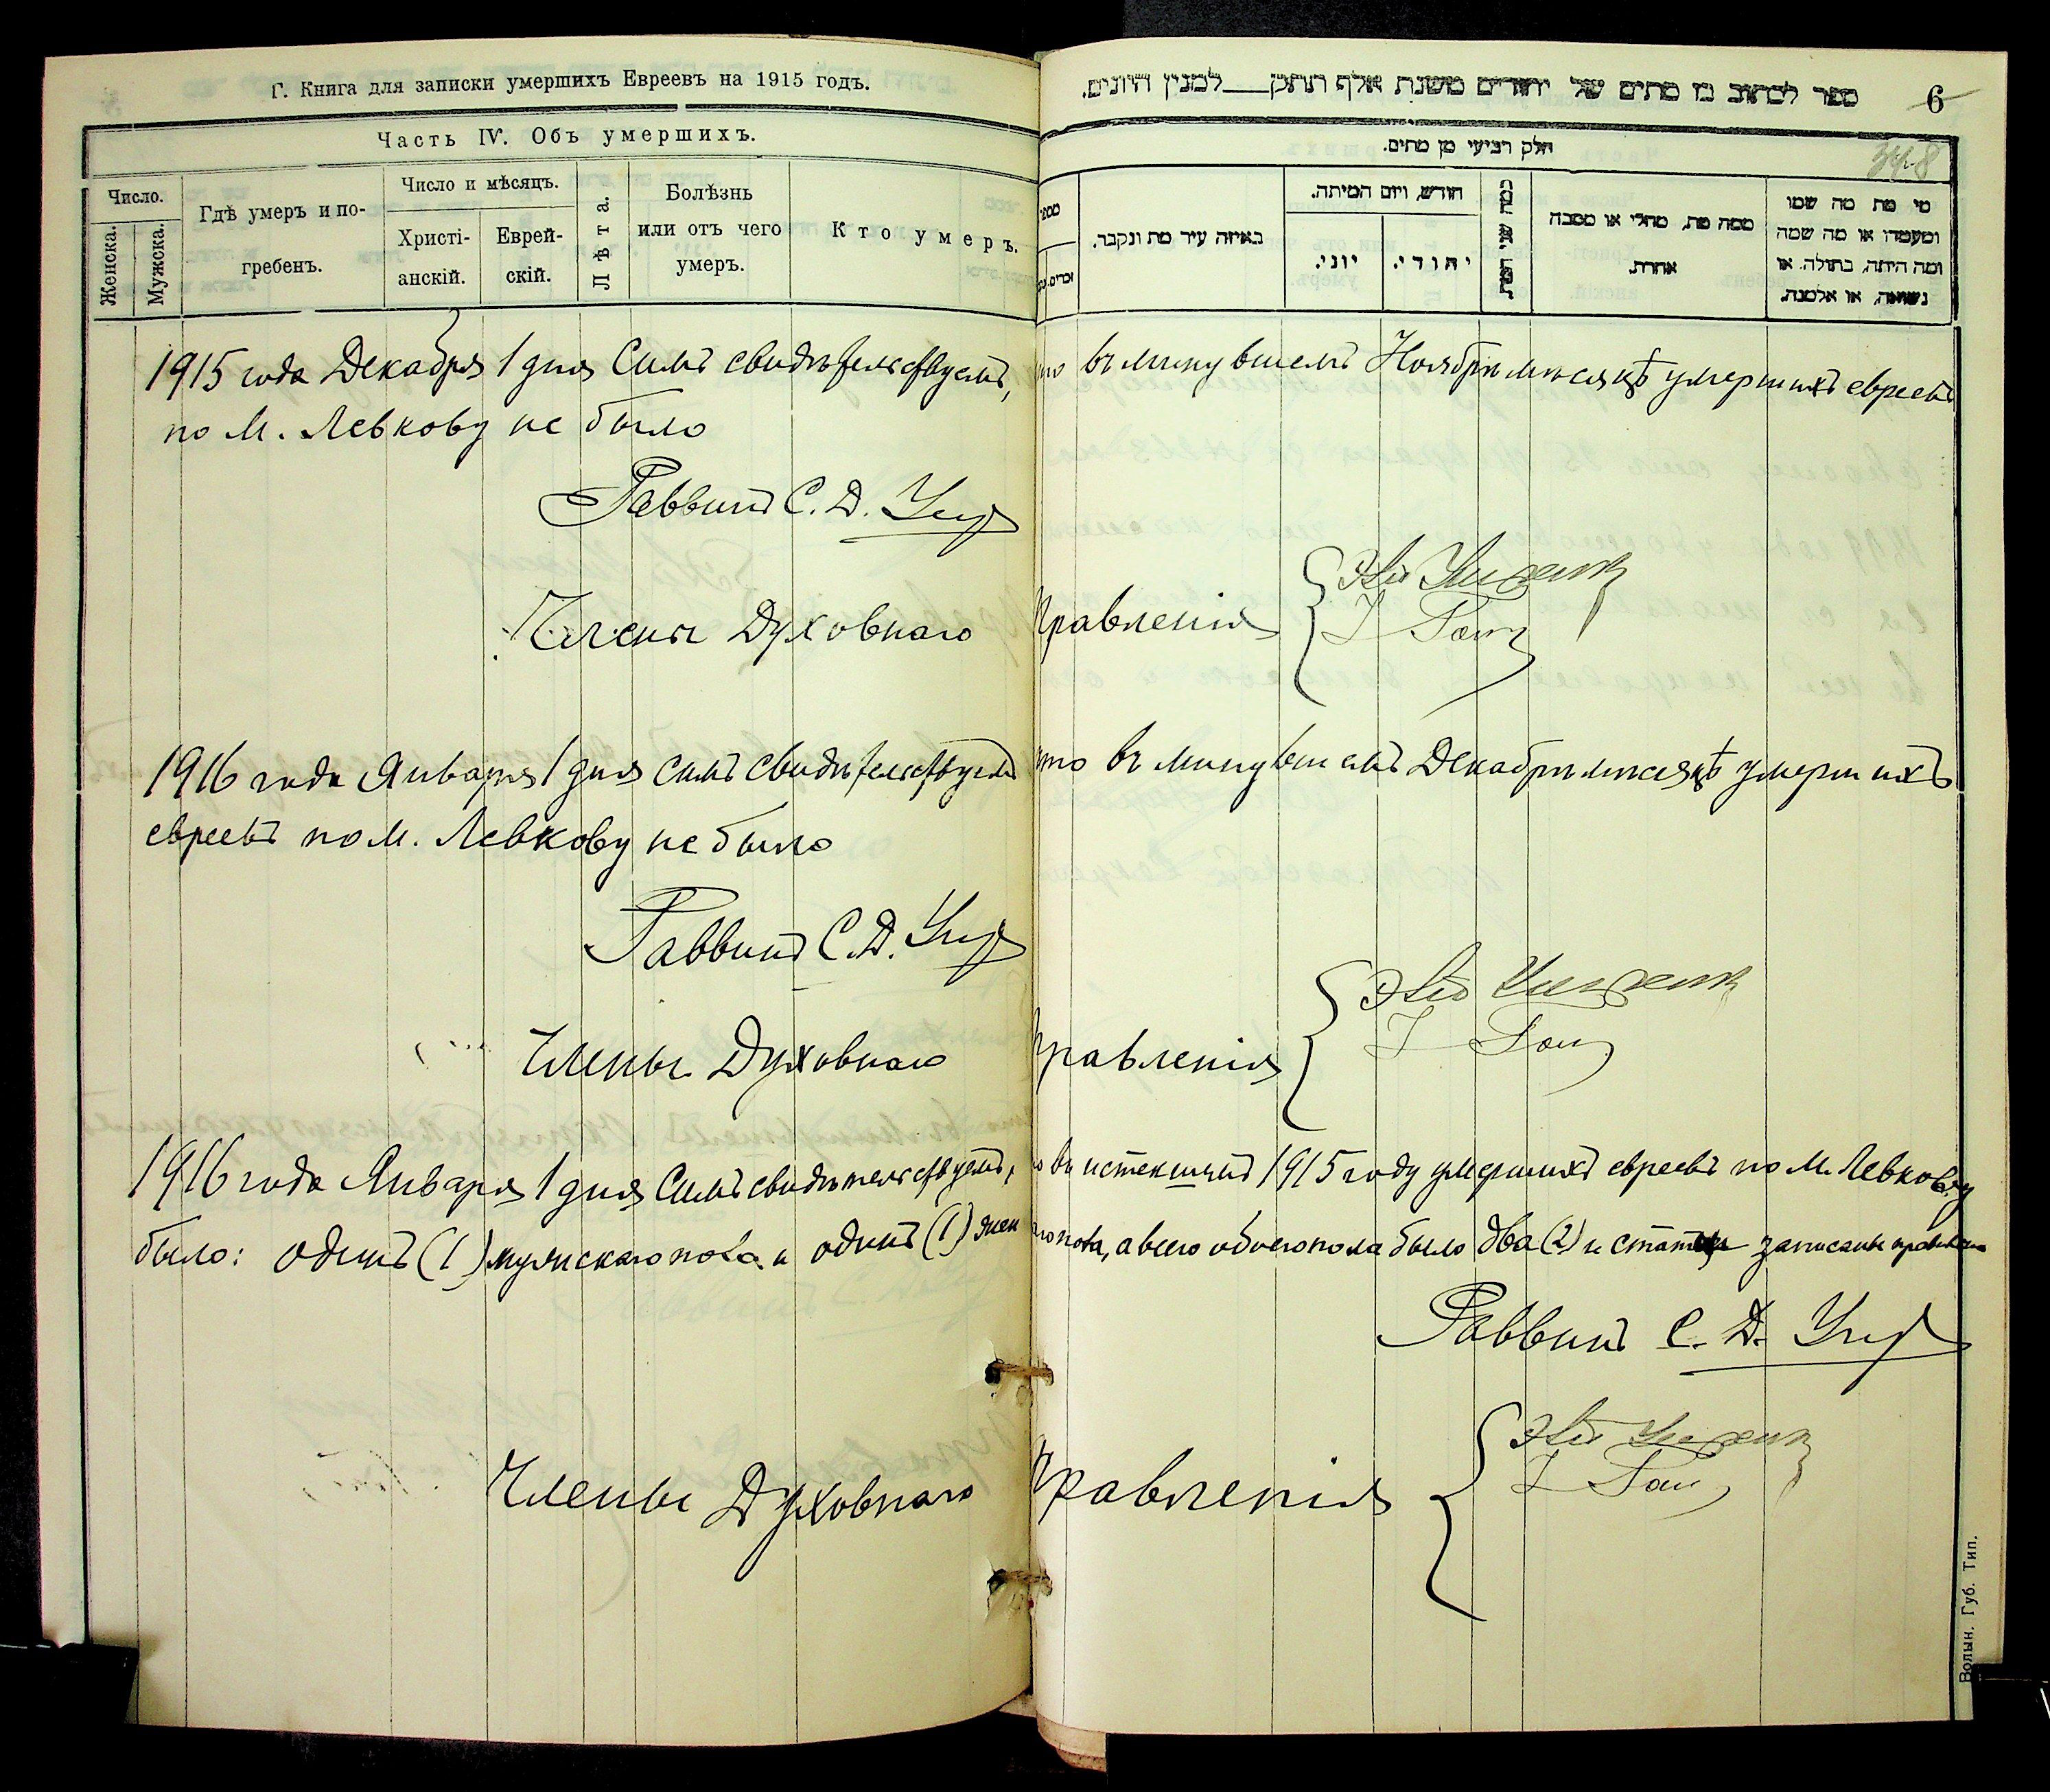 Г. Книга для записки умершихъ Евреевъ на 1915 годъ.
Часть IV. Объ умершихъ.
Число.
Женска.
Мужска.
Гдѣ умеръ и по-
гребенъ.
Число и мѣсяцъ.
Христі-
анскій.
Еврей-
скій.
Лѣта.
Болѣзнь
или отъ чего
умеръ.
Кто умеръ.
ספר לכתוב בו מתים של יהודים משנת אלף תתק למנין היונים.
6
חלק רביעי מן מתים.
348
באיזה עיר מת ונקבר.
חודש, ויום המיתה.
יוני.
יהודי.
ממה מת, מחלי או מסבה
אחרת.
מי מת מה שמו
ומעמדו או מה שמה
ומה היתה, בתולה, או
נשואה, או אלמנה.
1915 года Декабря 1 дня Симъ свидѣтельствуемъ, что въ минувшемъ Ноябрѣ мѣсяцѣ умершихъ евреевъ
по М. Левкову не было
Раввинъ С. Д.
Члены Духовнаго Правленія
1916 года Января 1 дня симъ свидѣтельствуемъ что въ минувшемъ Декабрѣ мѣсяцѣ умершихъ
евреевъ по М. Левкову не было
Раввинъ С. Д.
Члены Духовнаго Правленія
1916 года Января 1 дня Симъ свидѣтельствуемъ, что въ истекшемъ 1915 году умершихъ евреевъ по М. Левкову
было: одинъ (1) мужскаго пола и одинъ (1) жен пола, а всего обоего пола было два (2) и статьи записаны правильно
Раввинъ С. Д.
Члены Духовнаго Правленія
Волын. Губ. Тип.